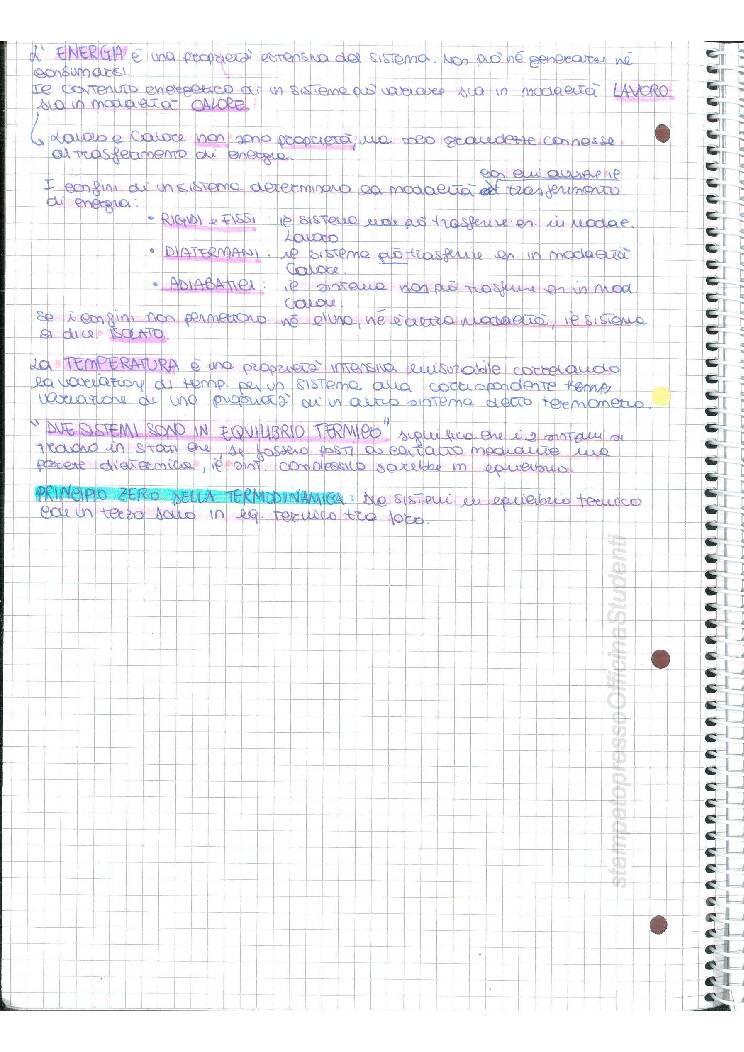 L' ENERGIA è una proprietà estensiva del sistema. Non può né generarsi né
consumarsi
Il contenuto energetico di un sistema può variare sia in modalità LAVORO
sia in modalità CALORE.
Lavoro e Calore non sono proprietà, ma solo grandezze connesse
al trasferimento di energia.
con cui avviene il
I confini di un sistema determinano la modalità trasferimento
di energia:
• RIGIDI e FISSI : il sistema non può trasferire en. in modal.
Lavoro
• DIATERMANI : il sistema può trasferire en in modalità
Calore.
• ADIABATICI : il sistema non può trasferire en in mod
Calore.
Se i confini non permettono né l'uno, né l'altra modalità, il sistema
si dice ISOLATO.
La TEMPERATURA è una proprietà intensiva misurabile correlando
la variazione di temp. per un sistema alla corrispondente temp,
variazione di una proprietà di un altro sistema detto termometro.
"DUE SISTEMI SONO IN EQUILIBRIO TERMICO" significa che i 2 sistemi si
trovano in stati che, se fossero posti a contatto mediante una
parete diatermica, il sist. complessivo sarebbe in equilibrio.
PRINCIPIO ZERO DELLA TERMODINAMICA: Due sistemi in equilibrio termico
con un terzo sono in eq. termico tra loro.
stampatopressoOfficinaStudenti